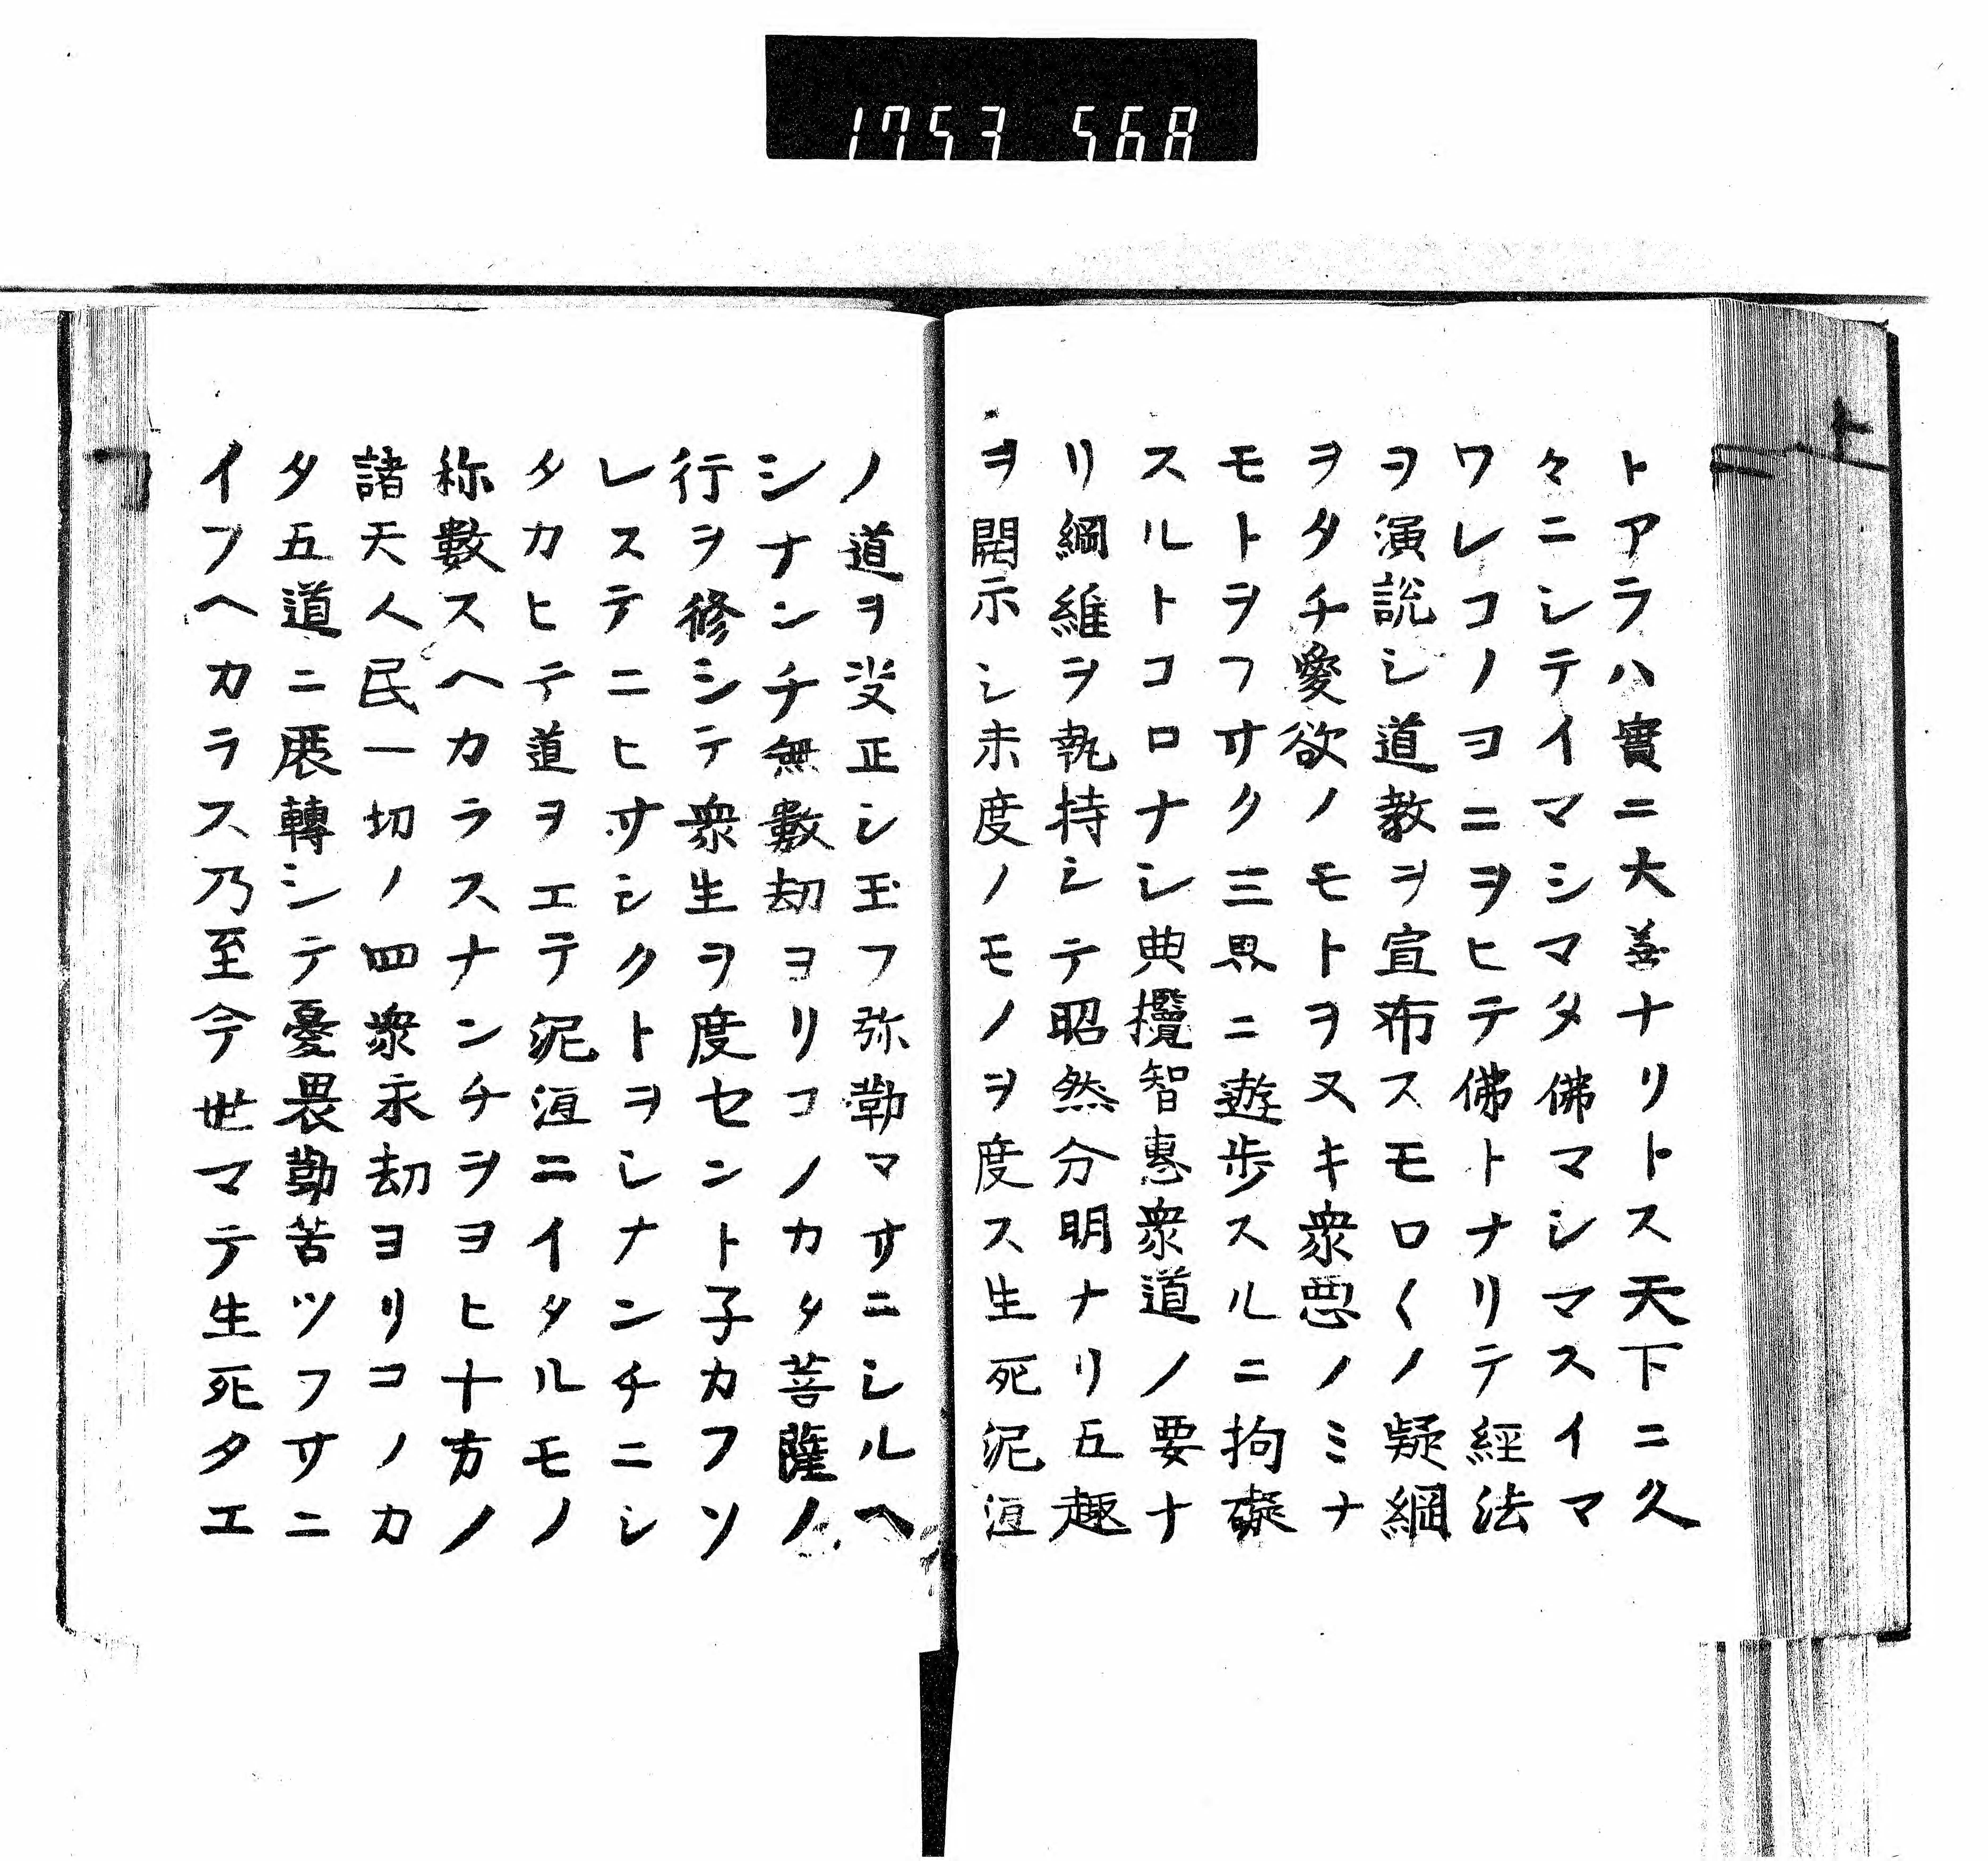 1753 568
ト
トアラハ實ニ大善ナリトス天下ニ久
々ニシテイマシマタ佛マシマスイマ
ワレコノヨニヲヒテ佛トナリテ經法
ヲ演説シ道教ヲ宣布スモロ〱ノ疑綱
ヲタチ愛欲ノモトヲヌキ衆惡ノミナ
モトヲフサク三界ニ遊歩スルニ拘礙
スルトコロナシ典攬智惠衆道ノ要ナ
リ綱維ヲ執持シテ昭然分明ナリ五趣
ヲ開示シ未度ノモノヲ度ス生死泥洹
ノ道ヲ决正シ玉フ弥勒マサニシルヘ
シナンチ無數劫ヨリコノカタ菩薩ノ
行ヲ修シテ衆生ヲ度セント子カフソ
レステニヒサシクトヲシナンチニシ
タカヒテ道ヲエテ泥洹ニイタルモノ
称數スヘカラスナンチヲヨヒ十方ノ
諸天人民一切ノ四衆永劫ヨリコノカ
タ五道ニ展轉シテ憂畏勤苦ツフサニ
イフヘカラス乃至今世マテ生死タエ